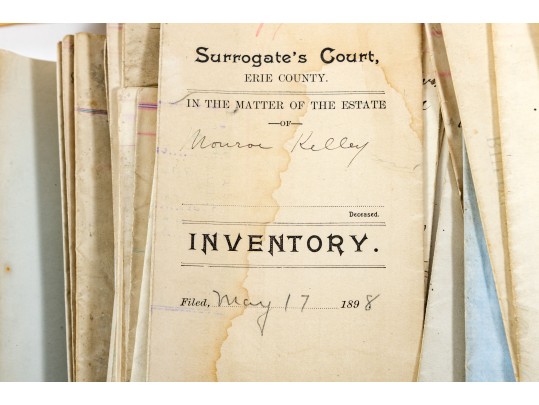 Surrogate's Court,
ERIE COUNTY.
IN THE MATTER OF THE ESTATE
—OF—
Monroe Kelley
Deceased.
INVENTORY.
Filed, May 17 1898